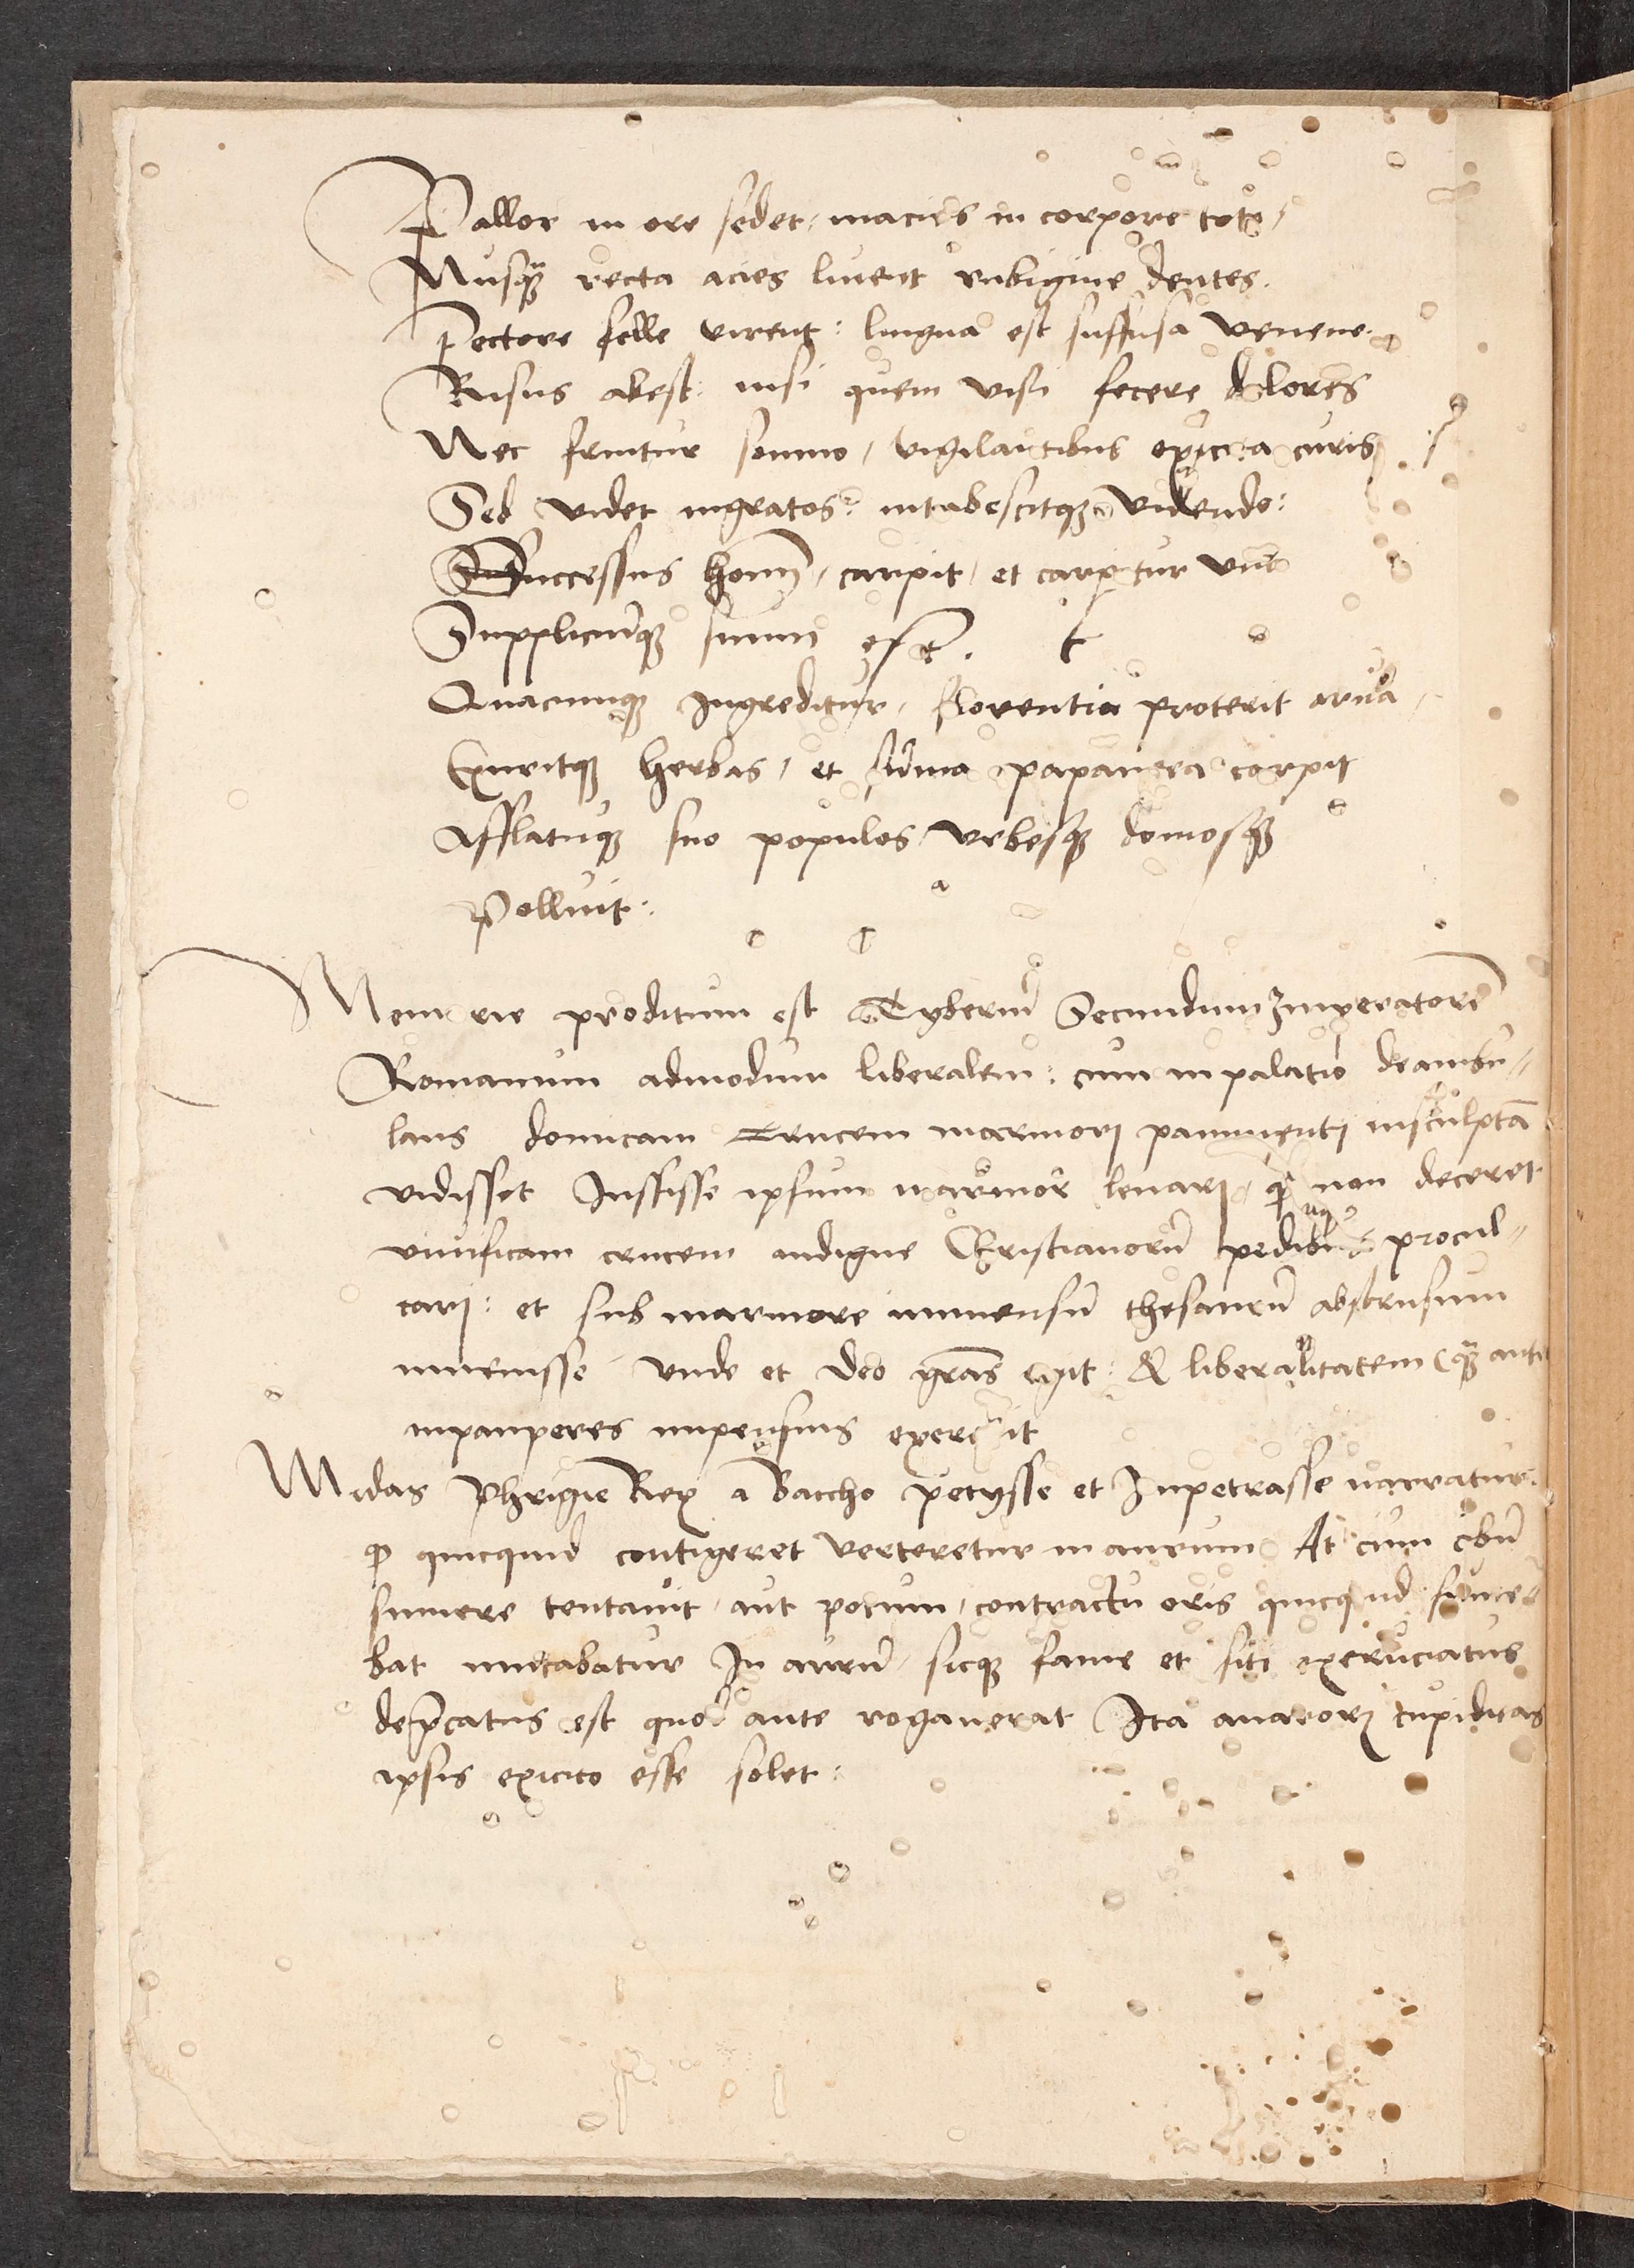 Pallor in ore sedet, macies in corpore toto,
Nusqͣ recta acies livent rubigine dentes.
Pectore felle virent: lingua est suffusa veneno.
Risus abest: nisi quem visi fecere dolores
Nec fruitur somno, vigilantibus excita curis
Sed videt ingratos: intabescitqꝫ videndo:
Successus homī, carpit, et carpitur una
Suppliciūqꝫ suum est.
Quacunqꝫ Ingreditur, florentia proterit arva,
Exuritqꝫ herbas, et sūma papauera carpit
Afflatuqꝫ suo populos, vrbesqꝫ domosqꝫ
Polluit:
Memorie proditum est Tyberiū Secundum Imperatorē
Romanum admodum liberalem: cum in palatio deambu-
lans dominicam Crucem marmorj pauimentj insculptā
vidisset Iussisse ipsum marmor leuarj, qͥ non deceret
viuificam crucem indigne Christianorū pedibus procul-
carj: et sub marmore immensū thesaurū abstrusum
inuenisse. Vnde et deo grās egit: & liberalitatem (qͣ ante
in pauperes impensius exercuit
Midas Phrigie Rex a Baccho petysse et Impetrasse narratur.
ꝙ quicquid contigeret verteretur in aurum At cum cibū
sumere tentauit, aut potum, contractu oris quicquid sume-
bat mutabatur In aurū, sicqꝫ fame et siti excruciatus
dep̄catus est quod ante rogauerat Ita auarorꝫ cupiditas
ipsis exicio esse solet: